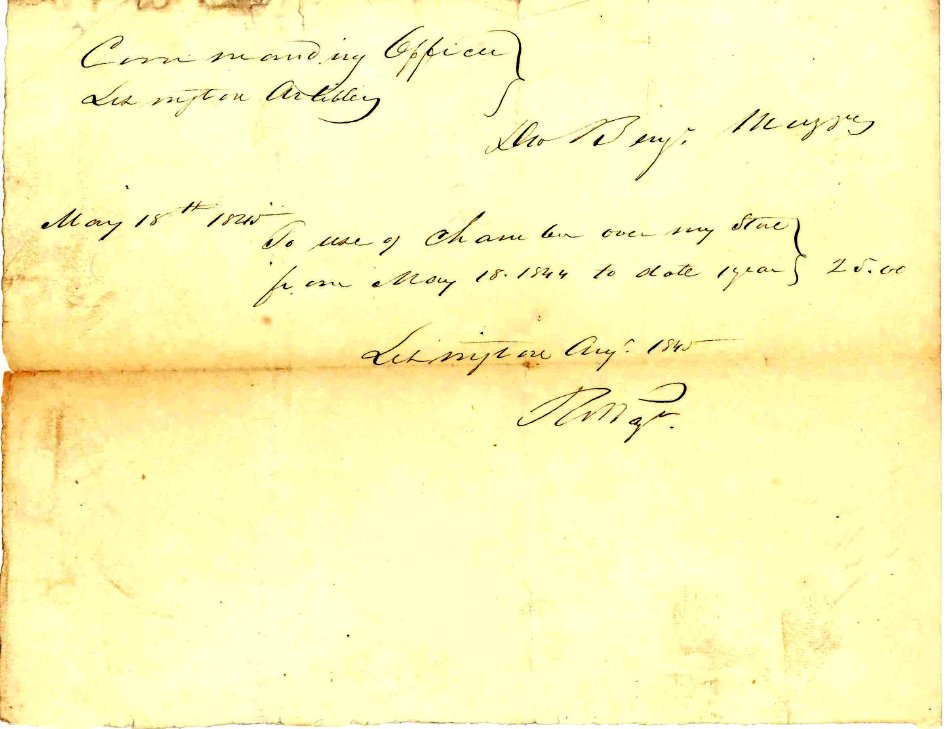 Commanding Officer
Lexington Artillery
Benjn. Muzzey
May 18th 1845
To use of Chamber over my Store
from May 18. 1844 to date 1 year 25.00
Lexington Augt. 1845